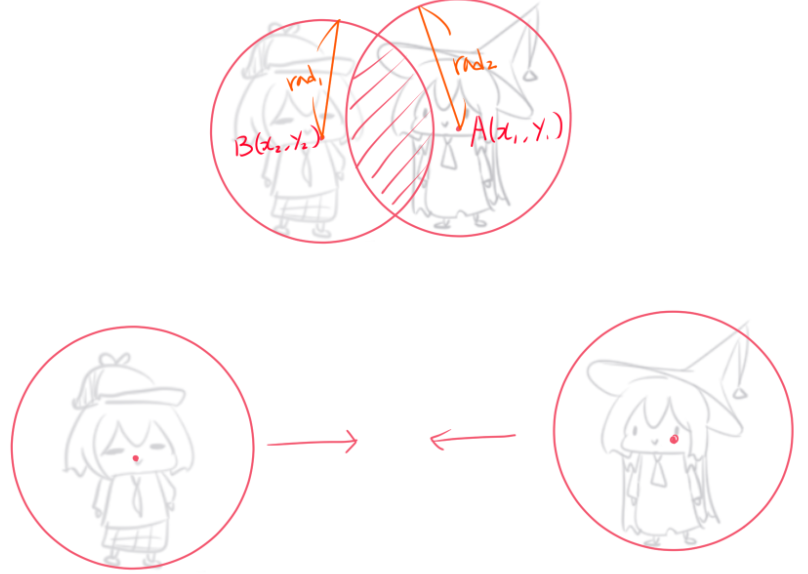 rad₁
rad₂
B(x₂, y₂)
A(x₁, y₁)